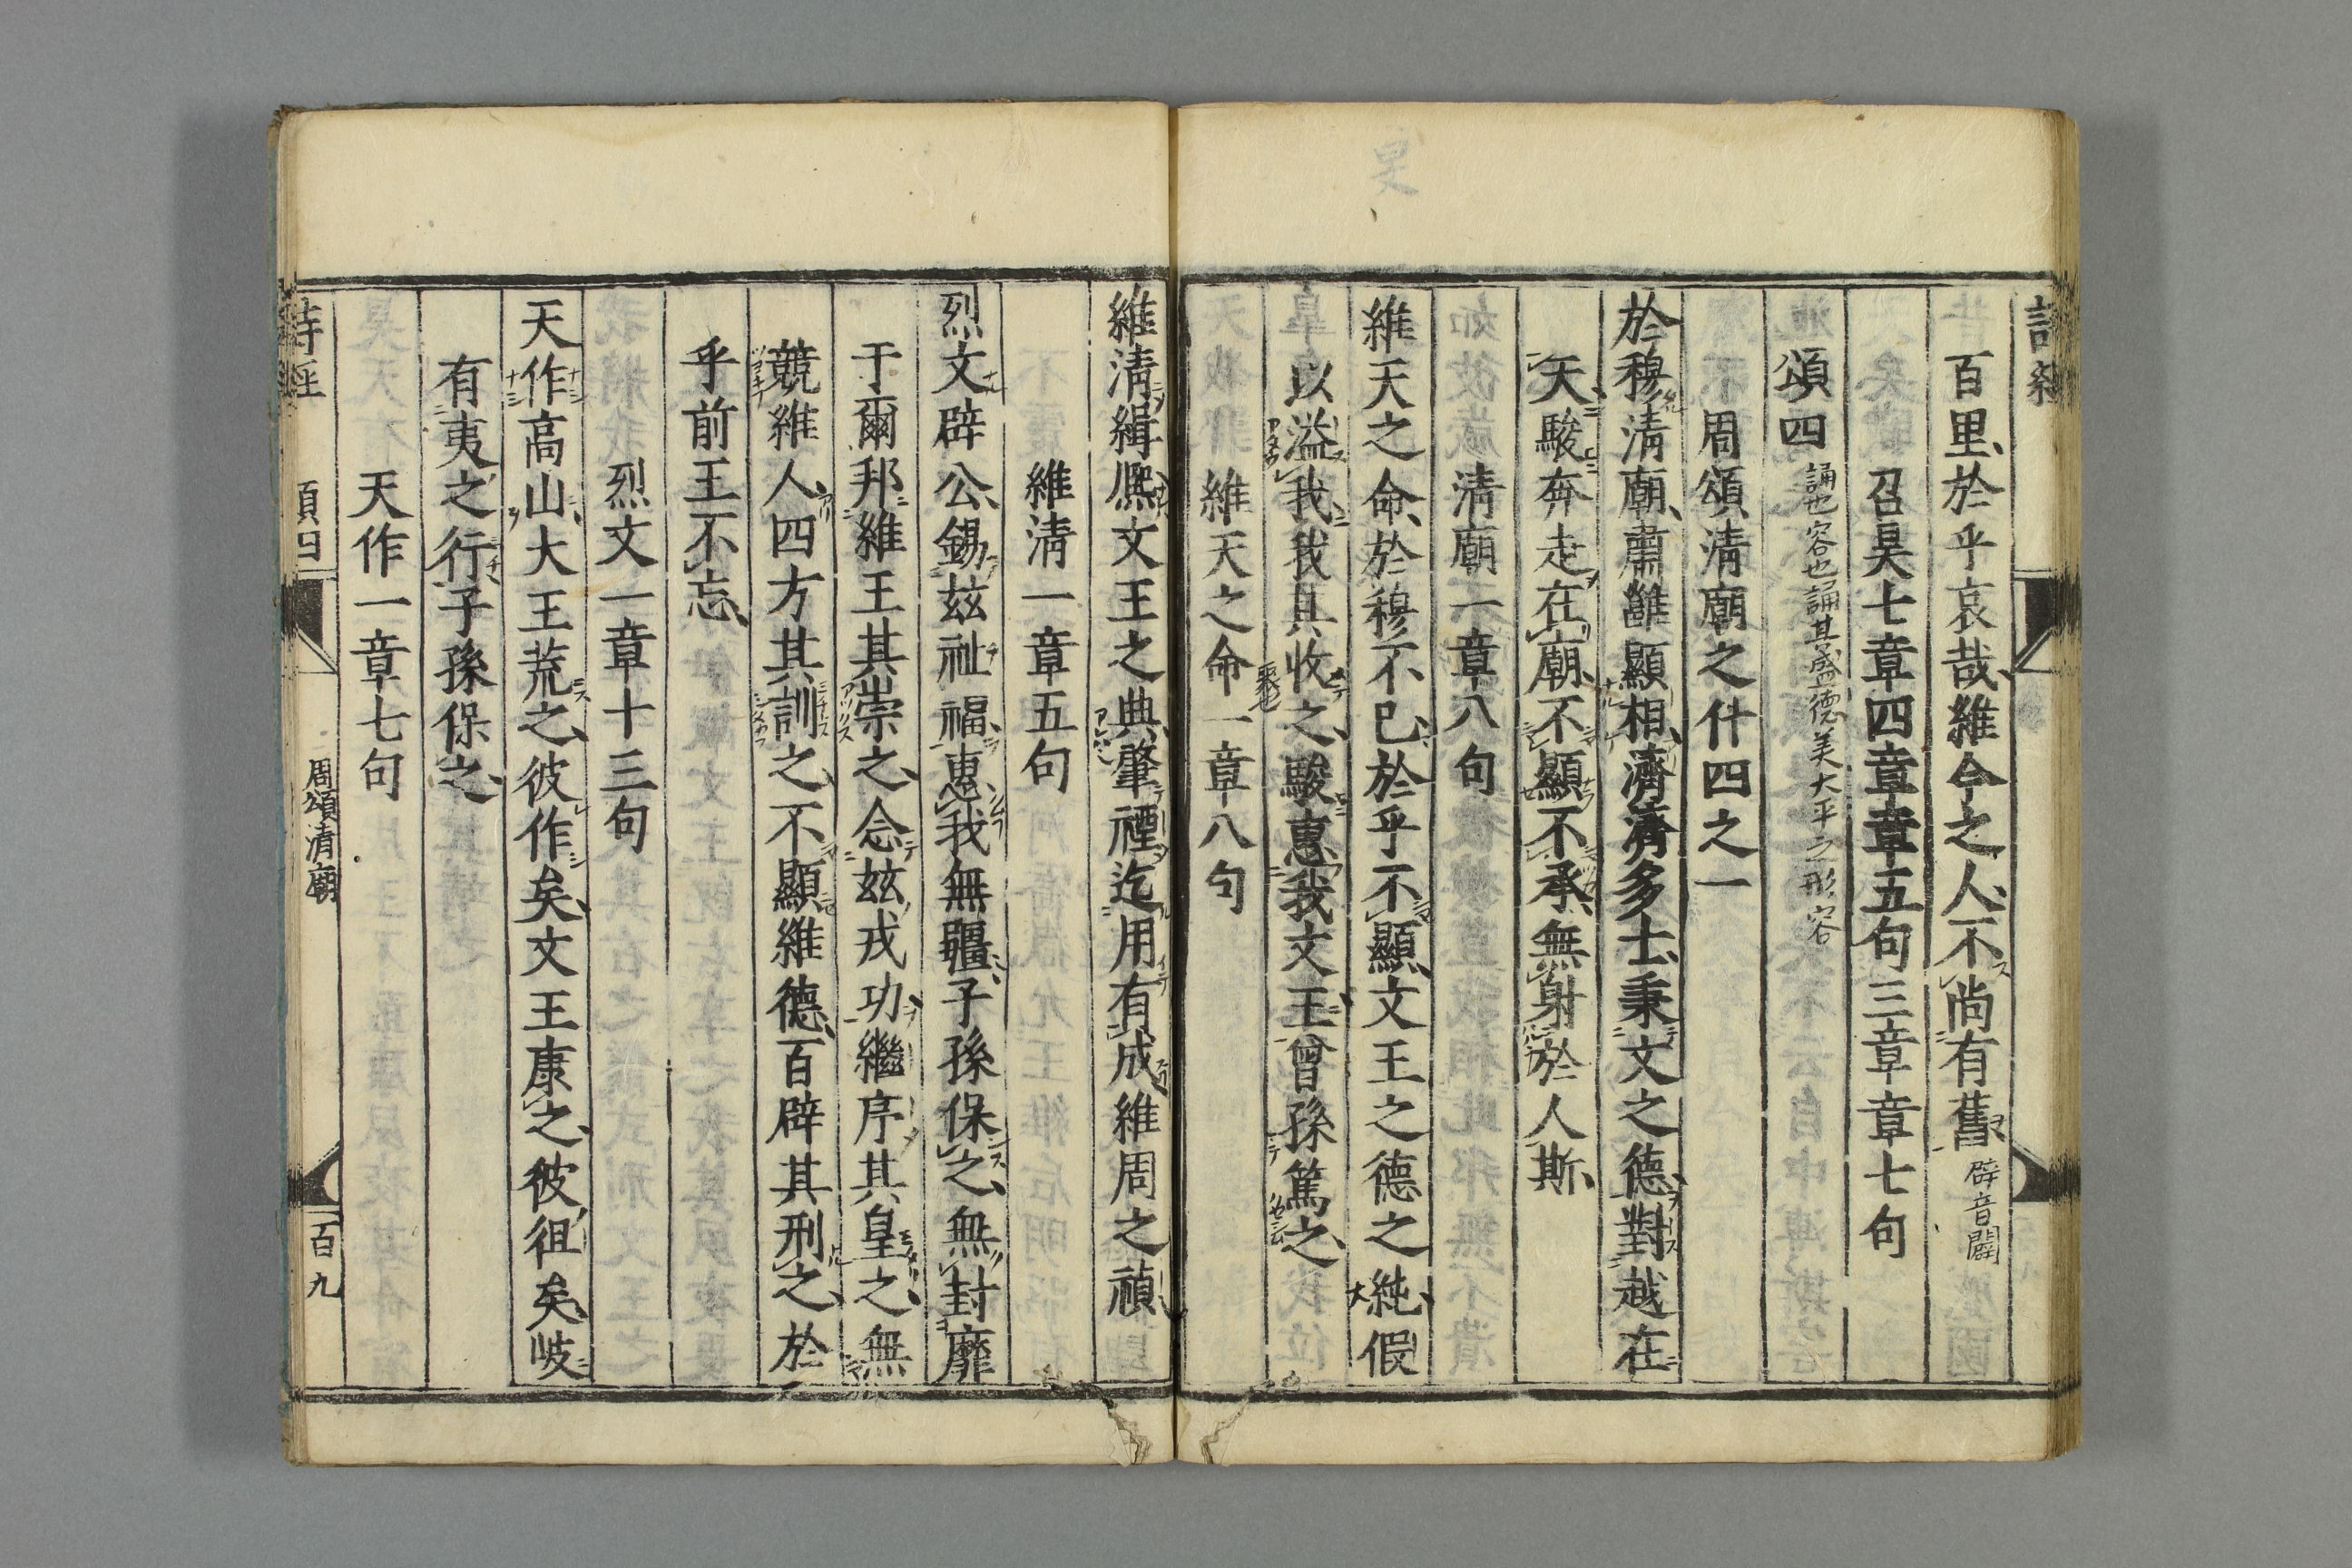 百里於乎哀哉維今之人不尚有舊辟音闢
召旻七章四章章五句三章章七句
頌四誦也容也誦其盛德美大平之形容
周頌淸廟之什四之一
於穆淸廟肅雝顯相濟濟多士秉文之德對越在
天駿奔走在廟不顯不承無射於人斯
淸廟一章八句
維天之命於穆不已於乎不顯文王之德之純假
以溢我我其收之駿惠我文王曾孫篤之
維天之命一章八句
維淸緝熙文王之典肇禋迄用有成維周之禎
維淸一章五句
烈文辟公錫玆祉福惠我無疆子孫保之無封靡
于爾邦維王其崇之念玆戎功繼序其皇之無
競維人四方其訓之不顯維德百辟其刑之於
乎前王不忘
烈文一章十三句
天作高山大王荒之彼作矣文王康之彼徂矣岐
有夷之行子孫保之
天作一章七句
詩經 頌四 周頌淸廟 百九